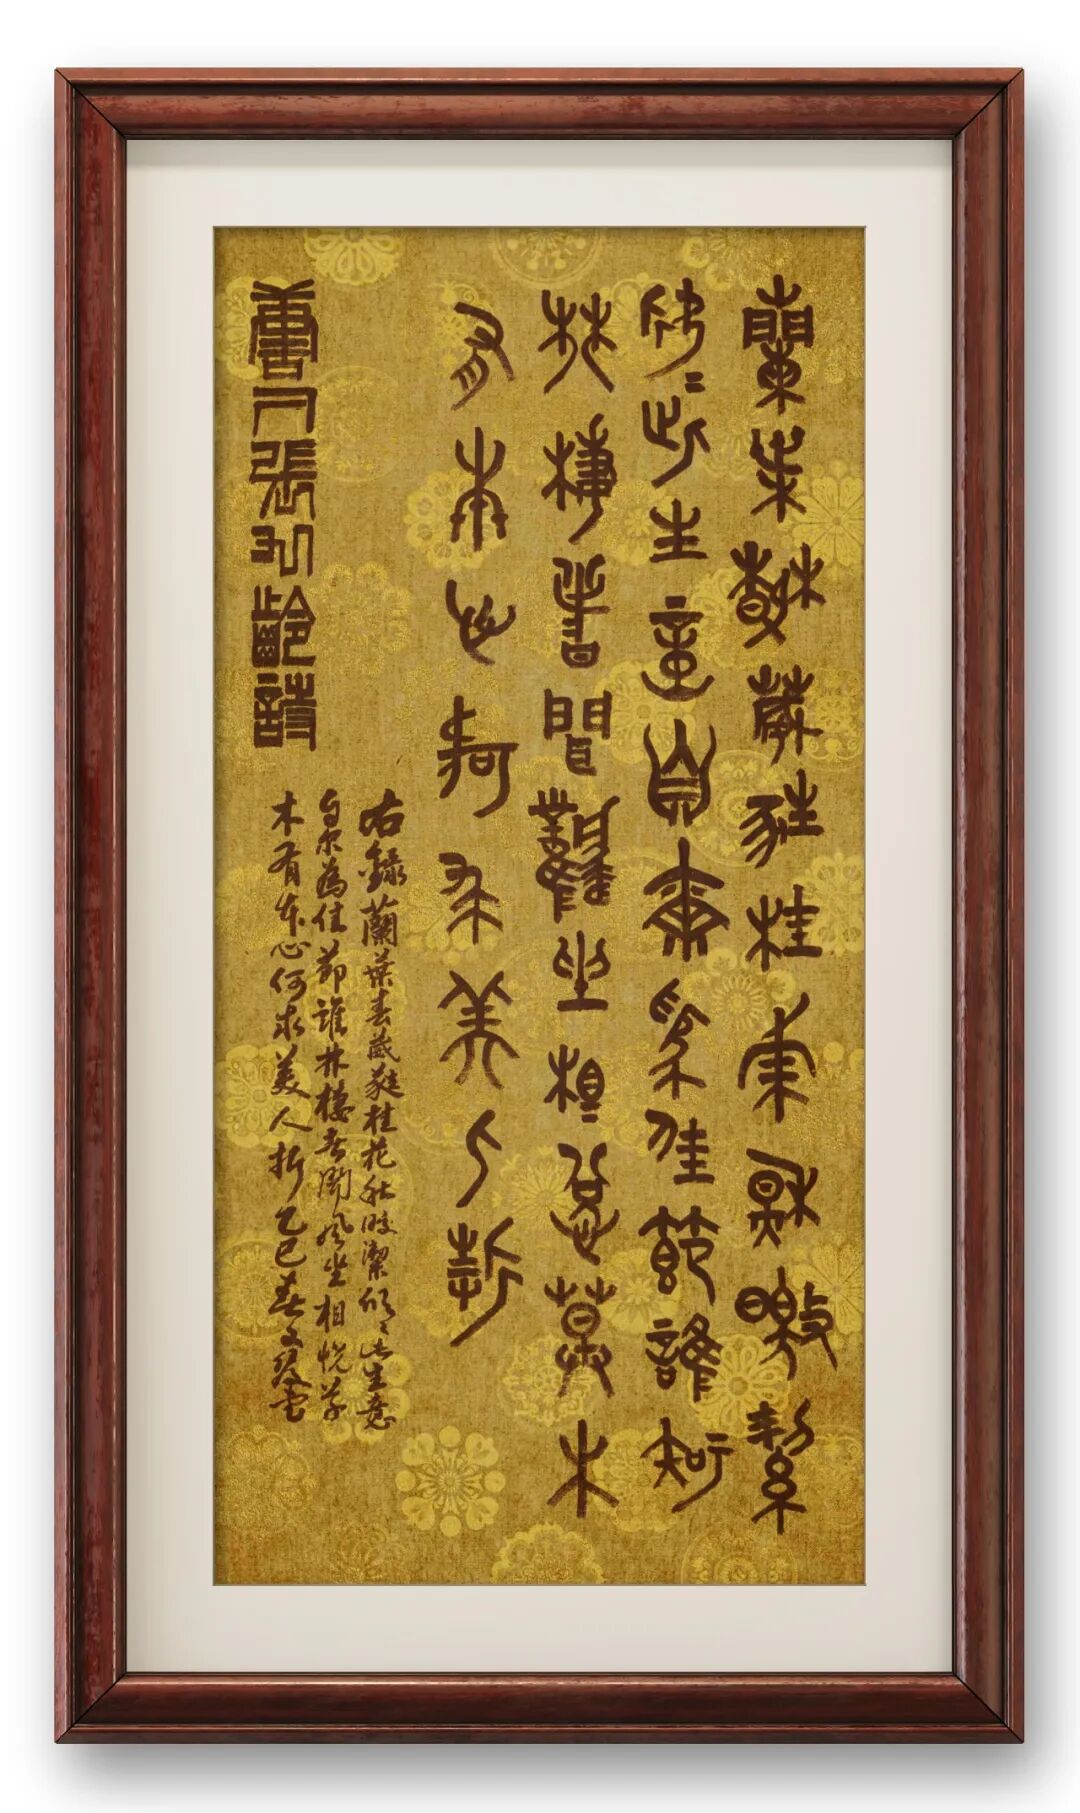 蘭葉春葳蕤桂華秋皦絜
欣〻此生意自爾為佳節誰知
林棲者聞風坐相悅草木
有本心何求美人折
唐人張九齡詩
右錄蘭葉春葳蕤桂花秋皎潔欣〻此生意
自尔為佳節誰林棲者聞風坐相悅草
木有本心何求美人折乙巳春